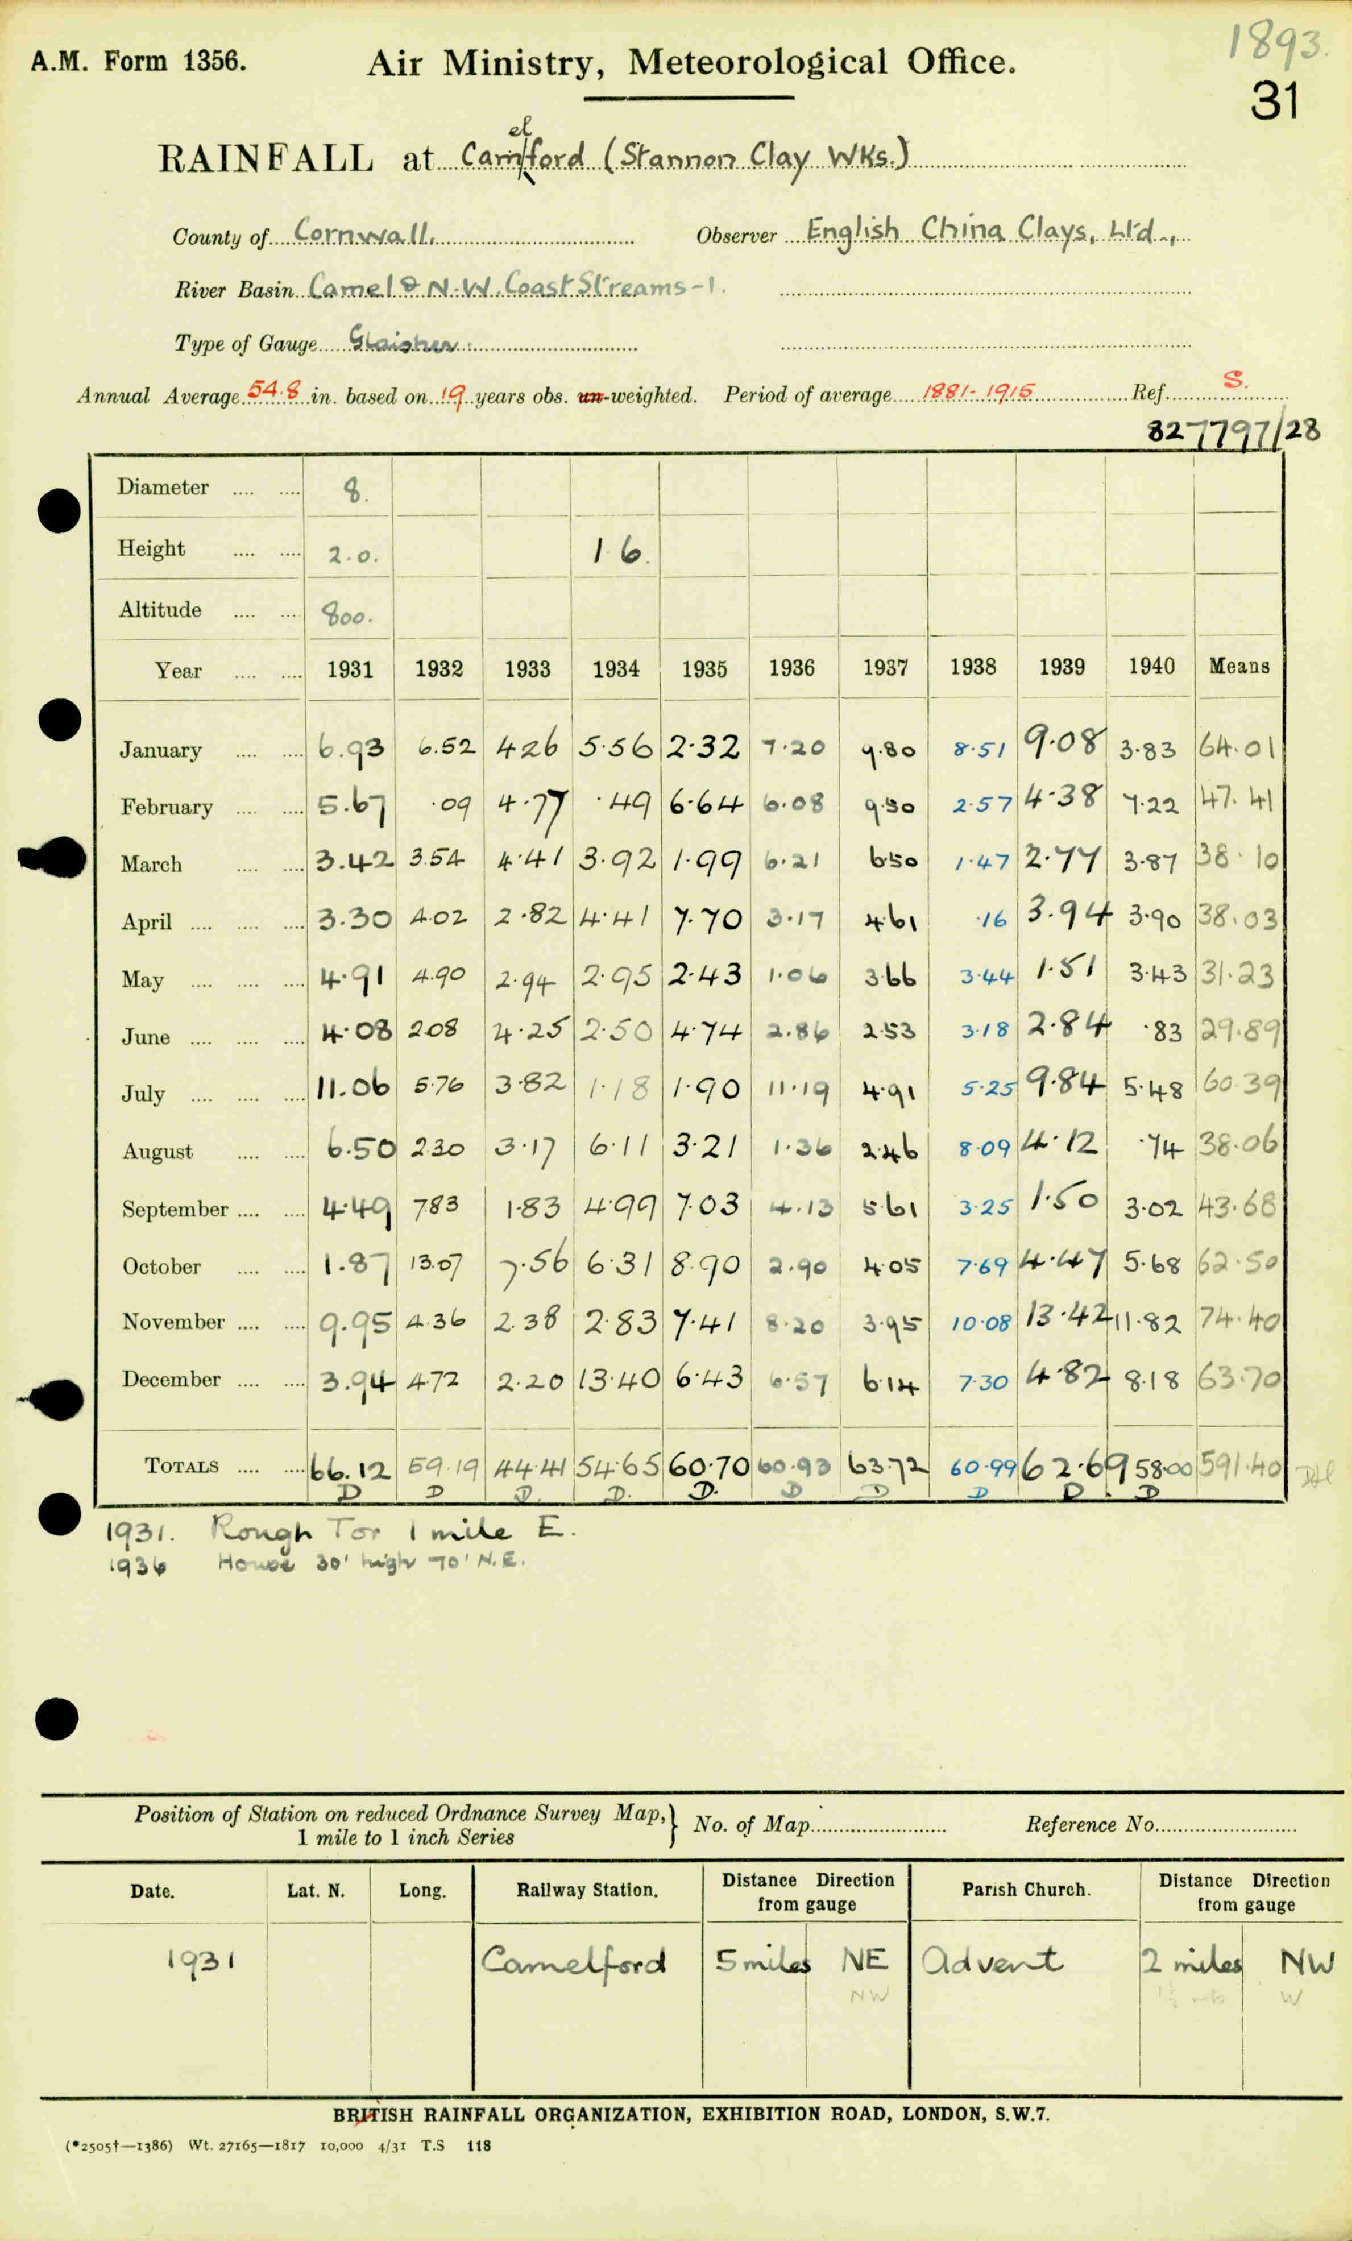 1893.
A.M. Form 1356. Air Ministry, Meteorological Office.
31
RAINFALL at Camelford (Stannon Clay Wks.)
County of Cornwall. Observer English China Clays, Ltd.,
River Basin Camel & N.W. Coast Streams-1.
Type of Gauge Glaisher.
Annual Average 54.8 in. based on 19 years obs. un-weighted. Period of average 1881-1915 Ref. S.
827797/28
Diameter 8.
Height 2.0. 1 6.
Altitude 800.
Year 1931 1932 1933 1934 1935 1936 1937 1938 1939 1940 Means
January 6.93 6.52 4.26 5.56 2.32 7.20 9.80 8.51 9.08 3.83 64.01
February 5.67 .09 4.77 .49 6.64 6.08 9.50 2.57 4.38 7.22 47.41
March 3.42 3.54 4.41 3.92 1.99 6.21 6.50 1.47 2.77 3.87 38.10
April 3.30 4.02 2.82 4.41 7.70 3.17 4.61 .16 3.94 3.90 38.03
May 4.91 4.90 2.94 2.95 2.43 1.06 3.66 3.44 1.51 3.43 31.23
June 4.08 2.08 4.25 2.50 4.74 2.86 2.53 3.18 2.84 .83 29.89
July 11.06 5.76 3.82 1.18 1.90 11.19 4.91 5.25 9.84 5.48 60.39
August 6.50 2.30 3.17 6.11 3.21 1.36 2.46 8.09 4.12 .74 38.06
September 4.49 7.83 1.83 4.99 7.03 4.13 5.61 3.25 1.50 3.02 43.68
October 1.87 13.07 7.56 6.31 8.90 2.90 4.05 7.69 4.47 5.68 62.50
November 9.95 4.36 2.38 2.83 7.41 8.20 3.95 10.08 13.42 11.82 74.40
December 3.94 4.72 2.20 13.40 6.43 6.57 6.14 7.30 4.82 8.18 63.70
TOTALS 66.12 59.19 44.41 54.65 60.70 60.93 63.72 60.99 62.69 58.00 591.40
D D D. D. D. D D D D. D
1931. Rough Tor 1 mile E.
1936 House 30' high 70' N.E.
Position of Station on reduced Ordnance Survey Map, No. of Map Reference No.
1 mile to 1 inch Series
Date. Lat. N. Long. Railway Station. Distance Direction from gauge Parish Church. Distance Direction from gauge
1931 Camelford 5 miles NE Advent 2 miles NW
NW 1½ mls W
BRITISH RAINFALL ORGANIZATION, EXHIBITION ROAD, LONDON, S.W.7.
(*2505†—1386) Wt. 27165—1817 10,000 4/31 T.S 118